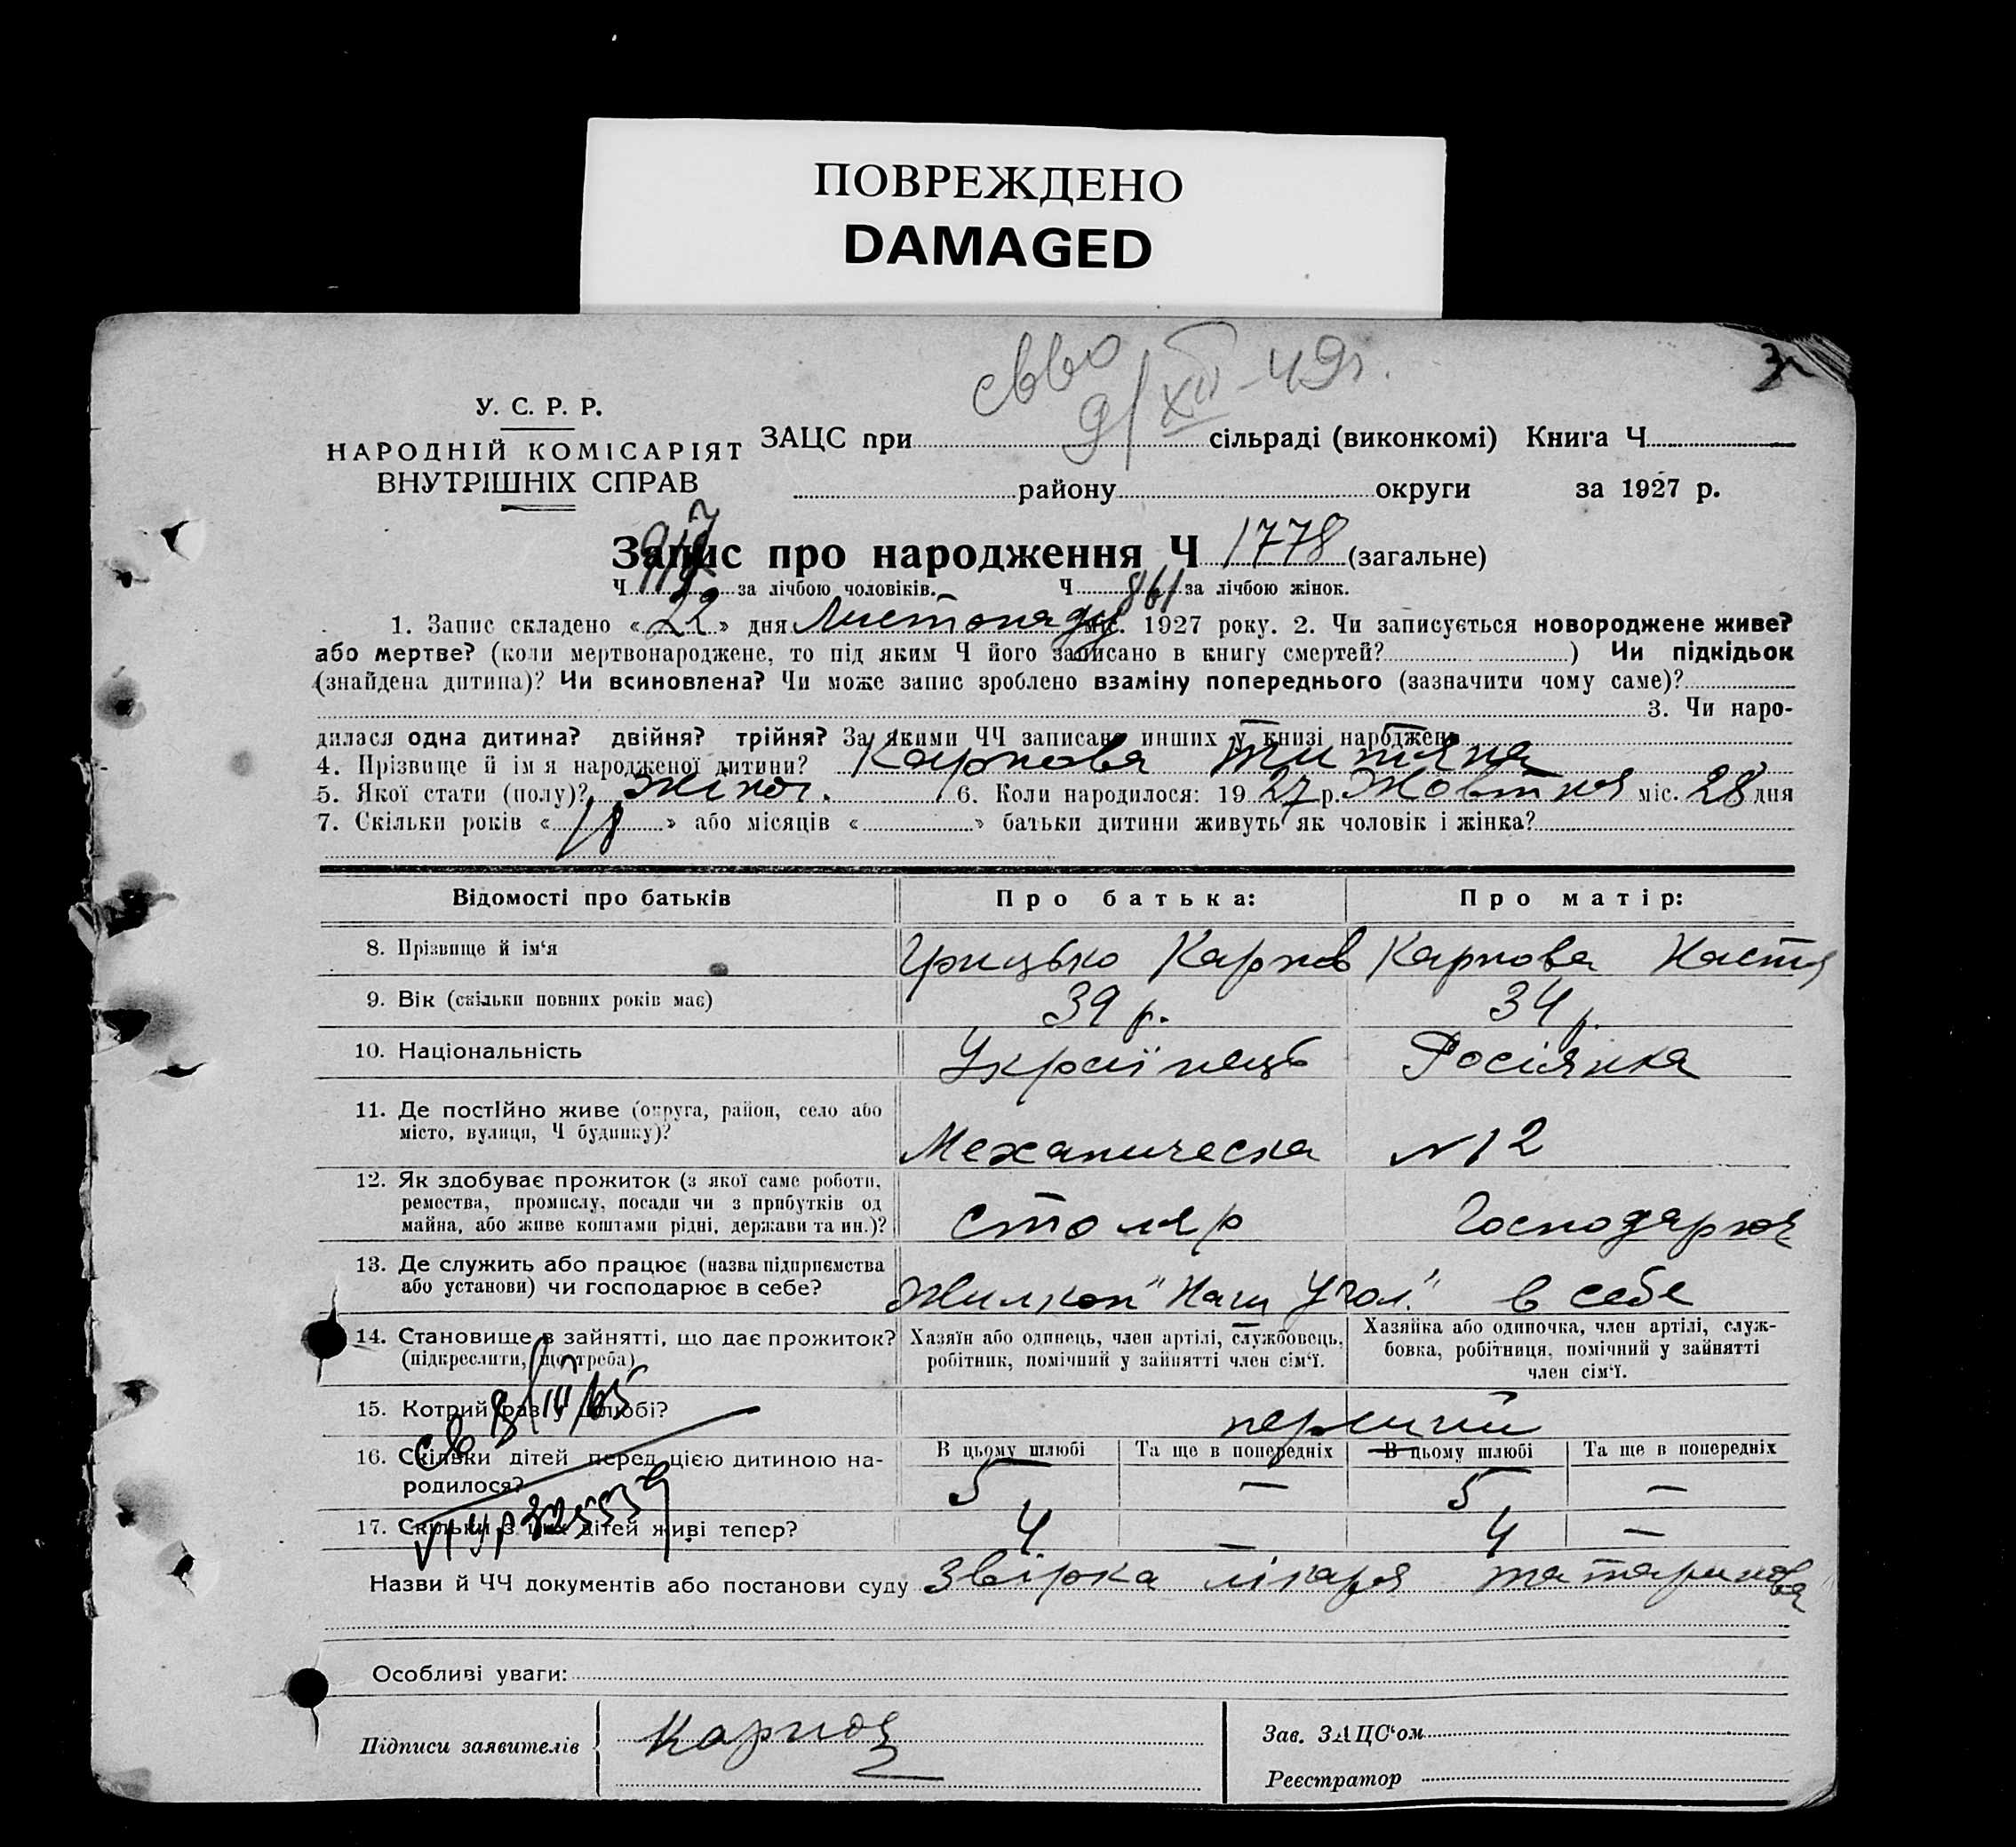 ПОВРЕЖДЕНО
DAMAGED
свво
9/XII-49г.
У. С. Р. Р.
НАРОДНІЙ КОМІСАРІЯТ
ВНУТРІШНІХ СПРАВ
ЗАЦС при сільраді (виконкомі) Книга Ч.
району округи за 1927 р.
Запис про народження Ч 1778 (загальне)
Ч за лічбою чоловіків. Ч 861 за лічбою жінок.
1. Запис складено « 22 » дня Листопаду міс. 1927 року. 2. Чи записується новороджене живе?
або мертве? (коли мертвонароджене, то під яким Ч його записано в книгу смертей? ) Чи підкідьок
(знайдена дитина)? Чи всиновлена? Чи може запис зроблено взаміну попереднього (зазначити чому саме)?
3. Чи наро-
дилася одна дитина? двійня? трійня? За якими ЧЧ записано инших у книзі народжень
4. Прізвище й ім я народженої дитини? Карпова Титяна
5. Якої стати (полу)? жіноч. 6. Коли народилося: 19 27 р. Жовтня міс. 28 дня
7. Скільки років « 18 » або місяців « » батьки дитини живуть як чоловік і жінка?
Відомості про батьків Про батька: Про матір:
8. Прізвище й ім‘я Грицько Карпов Карпова Настя
9. Вік (скільки повних років має) 39 р. 34 р.
10. Національність Українець Росіянка
11. Де постійно живе (округа, район, село або
місто, вулиця, Ч будинку)? Механическа №12
12. Як здобуває прожиток (з якої саме роботи,
ремества, промислу, посади чи з прибутків од
майна, або живе коштами рідні, держави та ин.)? столяр Господарює
13. Де служить або працює (назва підприємства
або установи) чи господарює в себе? Жилкоп "Наш Угол" в себе
14. Становище в зайнятті, що дає прожиток?
(підкреслити, що треба)
Хазяїн або одинець, член артілі, службовець,
робітник, помічний у зайнятті член сім‘ї.
Хазяйка або одиночка, член артілі, служ-
бовка, робітниця, помічний у зайнятті
член сім‘ї.
15. Котрий раз у шлюбі? перший
16. Скільки дітей перед цією дитиною на-
родилося?
В цьому шлюбі Та ще в попередніх В цьому шлюбі Та ще в попередніх
5 — 5 —
17. Скільки з цих дітей живі тепер? 4 4 —
Назви й ЧЧ документів або постанови суду Звірка лікаря Татаринова
Особливі уваги:
Підписи заявителів Карпов
Зав. ЗАЦС‘ом
Реєстратор